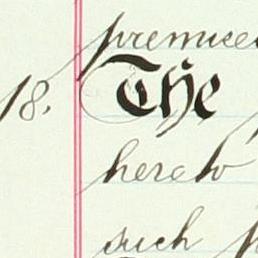 premises
18. The
hereto
such